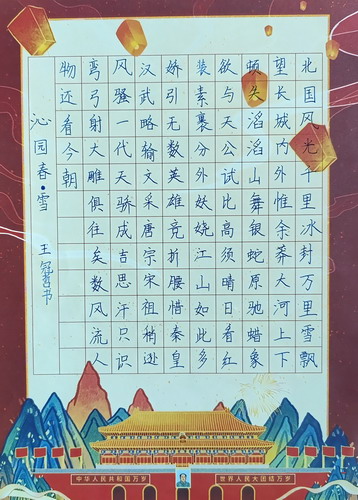 北国风光千里冰封万里雪飘
望长城内外惟余莽大河上下
顿失滔滔山舞银蛇原驰蜡象
欲与天公试比高须晴日看红
装素裹分外妖娆江山如此多
娇引无数英雄竞折腰惜秦皇
汉武略输文采唐宗宋祖稍逊
风骚一代天骄成吉思汗只识
弯弓射大雕俱往矣数风流人
物还看今朝
沁园春·雪 王冠书
中华人民共和国万岁
世界人民大团结万岁